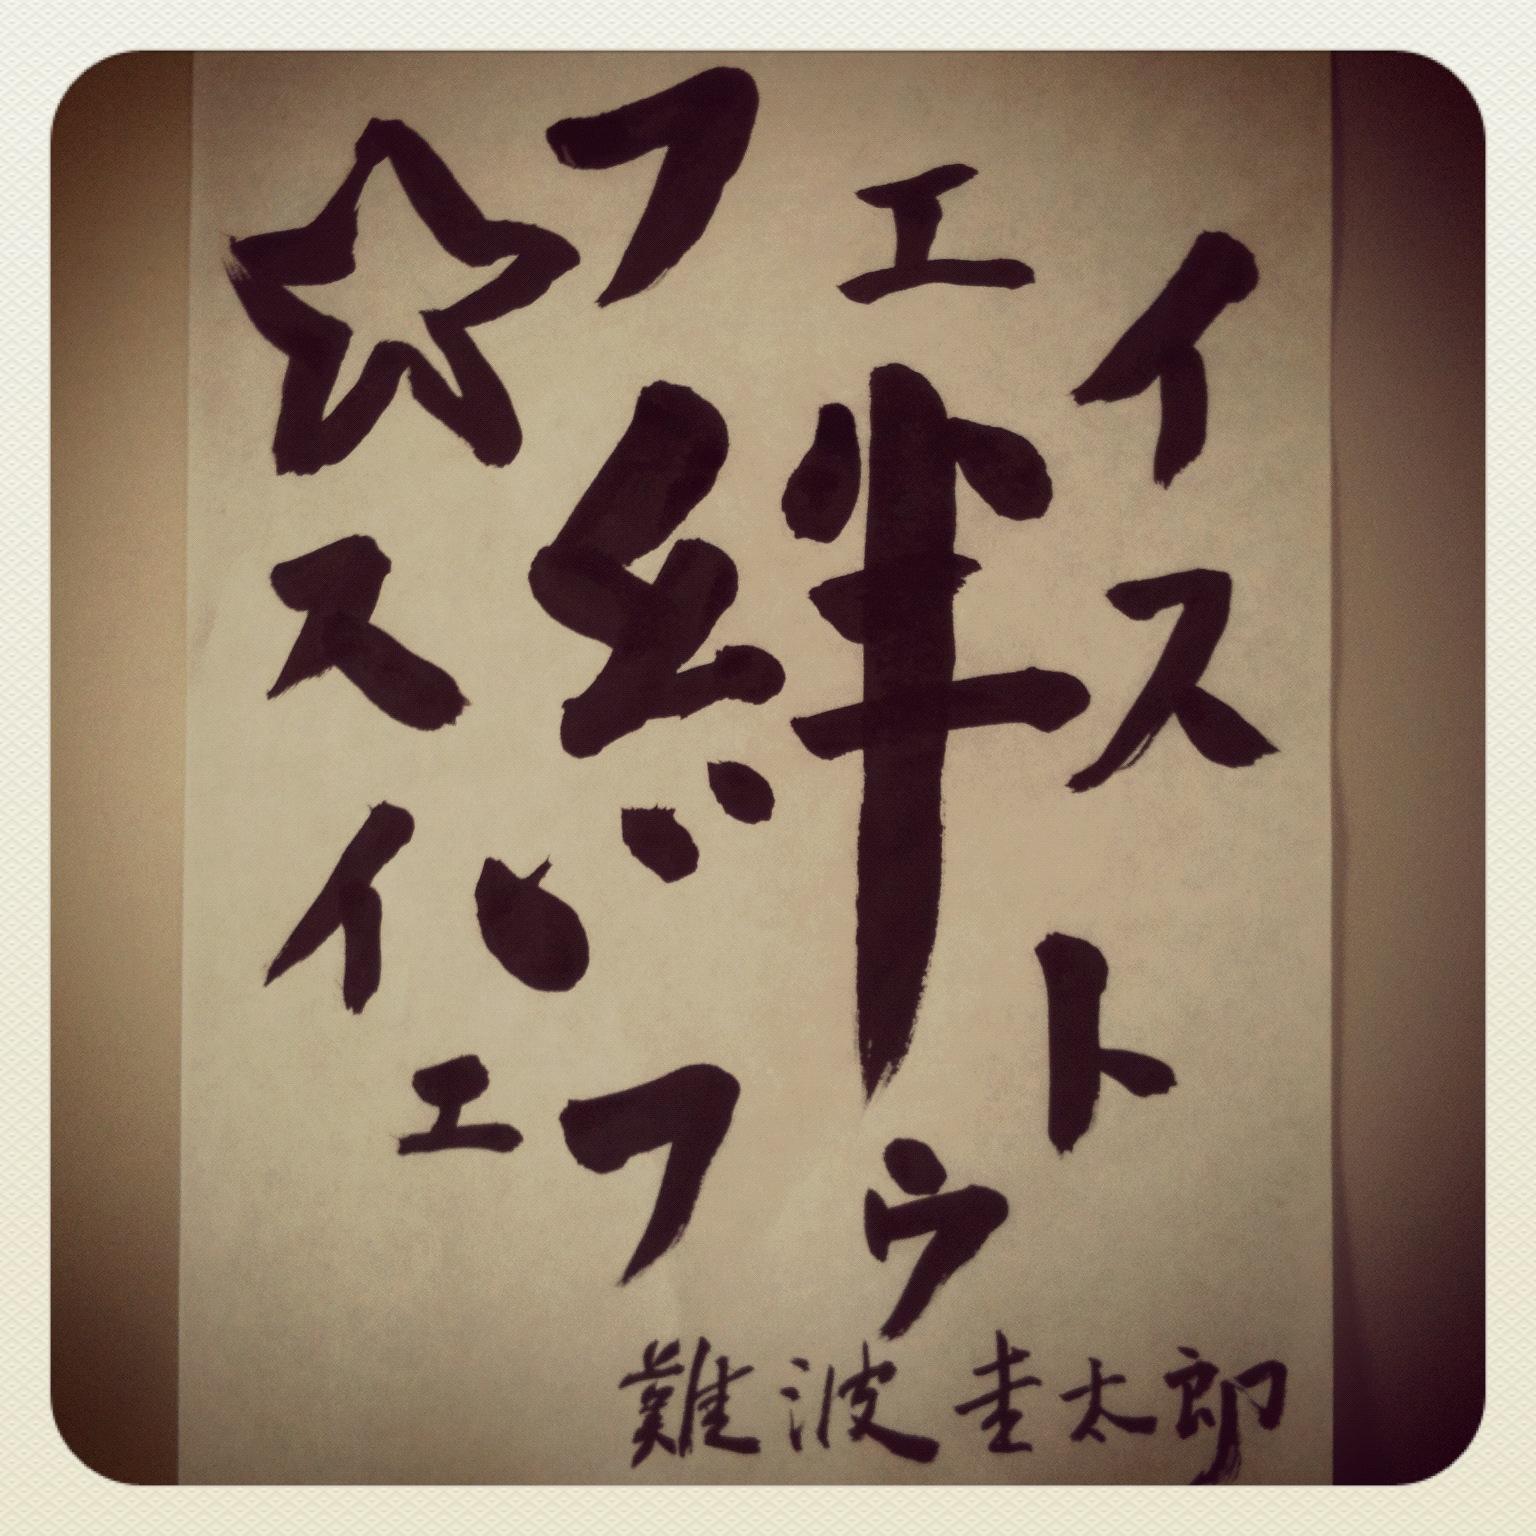 フェイストゥフェイス☆
絆
難波圭太郎